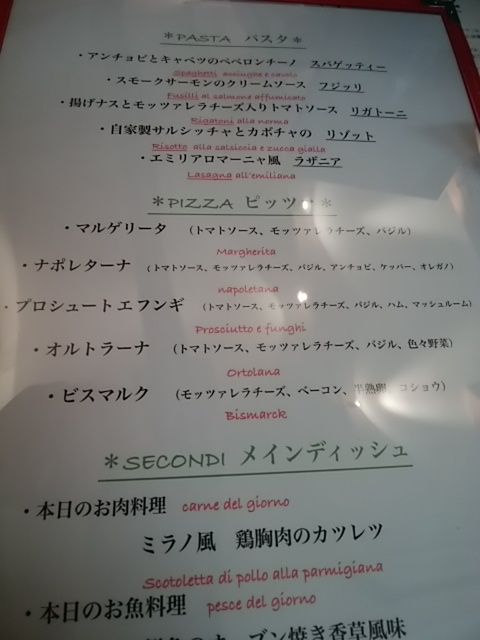 ＊PASTA パスタ＊
・アンチョビとキャベツのペペロンチーノ スパゲッティー
Spaghetti acciughe e cavolo
・スモークサーモンのクリームソース フジッリ
Fusilli al salmone affumicato
・揚げナスとモッツァレラチーズ入りトマトソース リガトーニ
Rigatoni alla norma
・自家製サルシッチャとカボチャの リゾット
Risotto alla salsiccia e zucca gialla
・エミリアロマーニャ風 ラザニア
Lasagna all'emiliana
＊PIZZA ピッツァ＊
・マルゲリータ （トマトソース、モッツァレラチーズ、バジル）
Margherita
・ナポレターナ （トマトソース、モッツァレラチーズ、バジル、アンチョビ、ケッパー、オレガノ）
napoletana
・プロシュートエフンギ （トマトソース、モッツァレラチーズ、バジル、ハム、マッシュルーム）
Prosciutto e funghi
・オルトラーナ （トマトソース、モッツァレラチーズ、バジル、色々野菜）
Ortolana
・ビスマルク （モッツァレラチーズ、ベーコン、半熟卵、コショウ）
Bismarck
＊SECONDI メインディッシュ
・本日のお肉料理 carne del giorno
ミラノ風 鶏胸肉のカツレツ
Scotoletta di pollo alla parmigiana
・本日のお魚料理 pesce del giorno
オーブン焼き香草風味